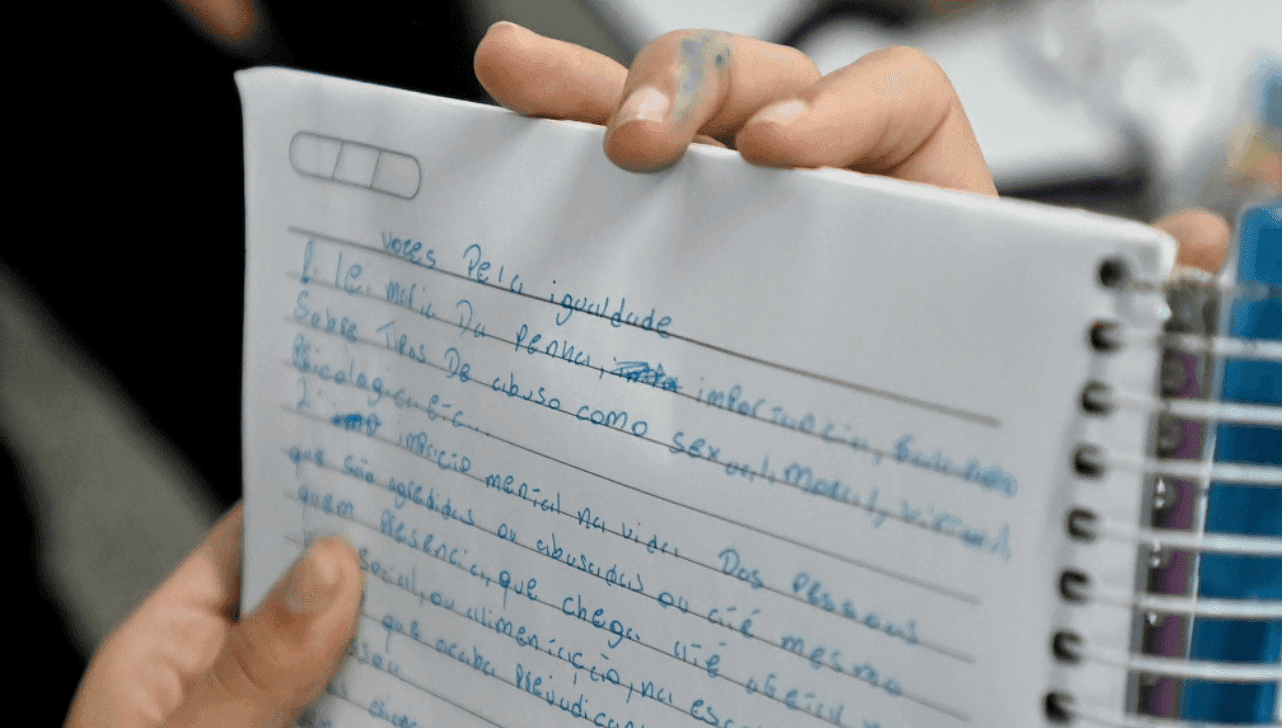 vozes Pela igualdade
1. lei maria Da Penha, importancia,
Sobre Tipos De abuso como sexual, moral, virtual,
Psicologica Etc...
2. impacto mental na vida Das Pessoas
que são agredidas ou abusadas ou até mesmo
quem Presencia, que chega até afetar
social, ou alimentação, na
que acaba Prejudican